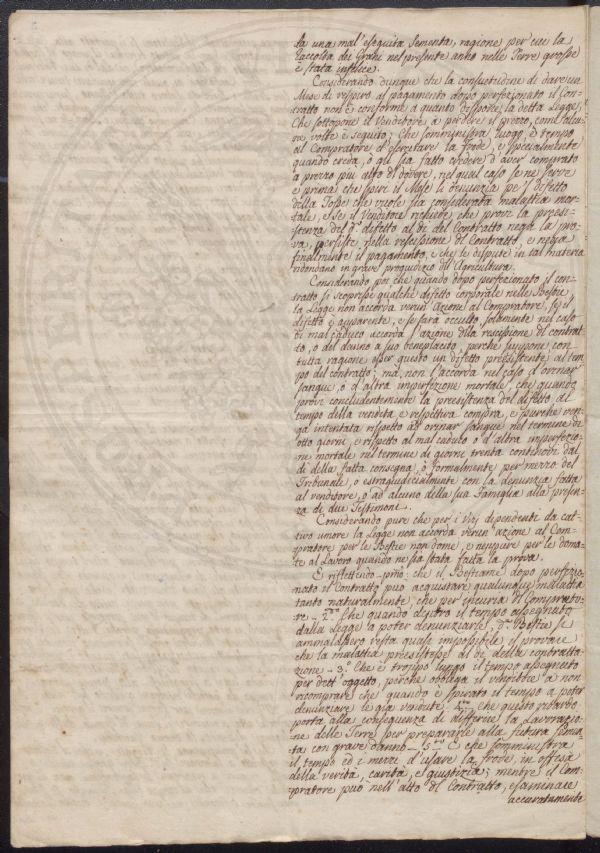 da una mal'eseguita Sementa, ragione per cui la
raccolta dei Grani nel presente anno nelle Terre grosse
è stata infelice.
Considerando dunque che la consuetudine di dare un
Mese di respiro al pagamento dopo perfezionato il Con-
tratto non è conforme a quanto dispone la detta Legge,
Che sottopone il Venditore a perdere il prezzo, come alcu-
na volta è seguito; Che somministra luogo, e tempo
al Compratore d'esercitare la frode, e specialmente
quando creda, o gli sia fatto credere d'aver comprato
a prezzo più alto di dovere, nel qual caso se ne serve
e prima che spiri il Mese li denunzia pe'l difetto
della Tosse che vuole sia considerata malattia mor-
tale, e se il Venditore richiede che provi la presi-
stenza del d.º difetto al dì del Contratto nega la pro-
va, persiste nella rescissione del Contratto, e nega
finalmente il pagamento, e che le dispute in tal materia
ridondano in grave pregiudizio dell'Agricoltura.
Considerando poi che quando dopo perfezionato il con-
tratto si scoprisse qualche difetto corporale nelle Bestie,
la Legge non accorda verun'Azione al Compratore, se il
difetto è apparente, e se sarà occulto, solamente nel caso
di mal caduco accorda l'azione della rescissione del contrat-
to, o del danno a suo beneplacito, perchè suppone con
tutta ragione esser questo un difetto preesistente al tem-
po del contratto; ma, non l'accorda nel caso d'orinar
sangue, o d'altra imperfezione mortale, che quando
provi concludentemente la preesistenza del difetto al
tempo della vendita e respettiva compra, e purchè ven-
ga intentata rispetto ad orinar sangue nel termine di
otto giorni, e rispetto al mal caduco o d'altra imperfezio-
ne mortale nel termine di giorni trenta contandi dal
dì della fatta consegna, o formalmente per mezzo del
Tribunale, o estragiudicialmente con la denunzia fatta
al venditore, o ad alcuno della sua Famiglia alla presen-
za di due Testimoni.
Considerando pure che per i vizj dipendenti da cat-
tivo umore la Legge non accorda verun'azione al Com-
pratore per le Bestie non dome, e neppure per le doma-
te al Lavoro quando ne sia stata fatta la prova.
E riflettendo - primo: che il Bestiame dopo perfezio-
nato il Contratto può acquistare qualunque malattia
tanto naturalmente, che per incuria del Comprato-
re - 2.do Che quando dentro il tempo assegnato
dalla Legge a poter denunziarle, d.e Bestie se
ammalassero resta quasi impossibile il provare
che la malattia preesistesse al dì della contratta-
zione - 3.º Che è troppo lungo il tempo assegnato
per dett'oggetto, perchè obbliga il venditore a non
ricomprare che quando è spirato il tempo a poter
denunziare le già vendute - 4.to che questo ritardo
porta alla conseguenza di differire la Lavorazio-
ne delle Terre per prepararle alla futura Semen-
ta con grave danno - 5.to E che somministra
il tempo ed i mezzi d'usare la frode, in offesa
della verità, carità, e giustizia; mentre il Com-
pratore può nell'atto del Contratto, esaminare
accuratamente